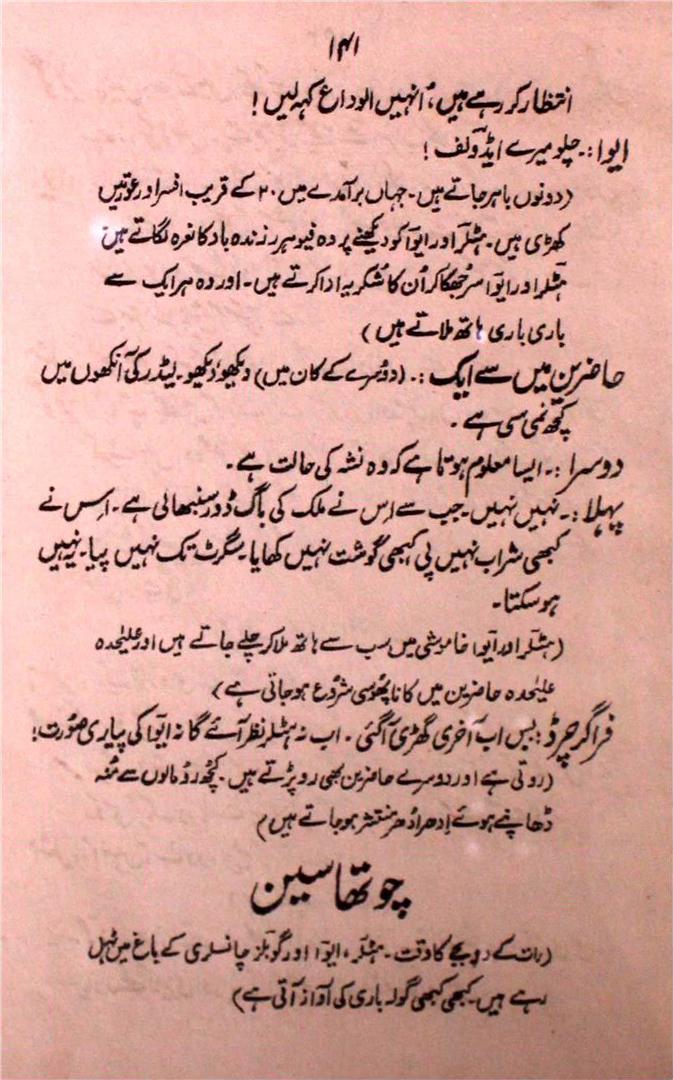 ۱۴۱
انتظار کر رہے ہیں، اُنہیں الوداع کہہ لیں!
ایوا:۔ چلو میرے ایڈولف!
(دونوں باہر جاتے ہیں۔ جہاں برآمدے میں ۲۰ کے قریب افسر اور عورتیں
کھڑی ہیں۔ ہٹلر اور ایوا کو دیکھنے پر وہ فیوہرر زندہ باد کا نعرہ لگاتے ہیں
ہٹلر اور ایوا سر جھکا کر اُن کا شکریہ ادا کرتے ہیں۔ اور وہ ہر ایک سے
باری باری ہاتھ ملاتے ہیں)
حاضرین میں سے ایک:۔ (دوسرے کے کان میں) دیکھو، دیکھو۔ لیڈر کی آنکھوں میں
کچھ نمی سی ہے۔
دوسرا:۔ ایسا معلوم ہوتا ہے کہ وہ نشہ کی حالت ہے۔
پہلا:۔ نہیں نہیں۔ جب سے اِس نے ملک کی باگ ڈور سنبھالی ہے۔ اِس نے
کبھی شراب نہیں پی کبھی گوشت نہیں کھایا۔ سگرٹ تک نہیں پیا۔ یہ نہیں
ہو سکتا۔
(ہٹلر اور ایوا خاموشی میں سب سے ہاتھ ملا کر چلے جاتے ہیں اور علیٰحدہ
علیٰحدہ حاضرین میں کانا پھُوسی شروع ہو جاتی ہے)
فراگرچرڈ: بس اب آخری گھڑی آ گئی۔ اب نہ ہٹلر نظر آئے گا نہ ایوا کی پیاری صُورت!
(روتی ہے اور دوسرے حاضرین بھی رو پڑتے ہیں۔ کچھ رُومالوں سے مُنہ
ڈھانپے ہوئے اِدھر اُدھر منتشر ہو جاتے ہیں)
چوتھا سین
(رات کے دو بجے کا وقت۔ ہٹلر، ایوا اور گوبلز چانسلری کے باغ میں ٹہل
رہے ہیں۔ کبھی کبھی گولہ باری کی آواز آتی ہے)